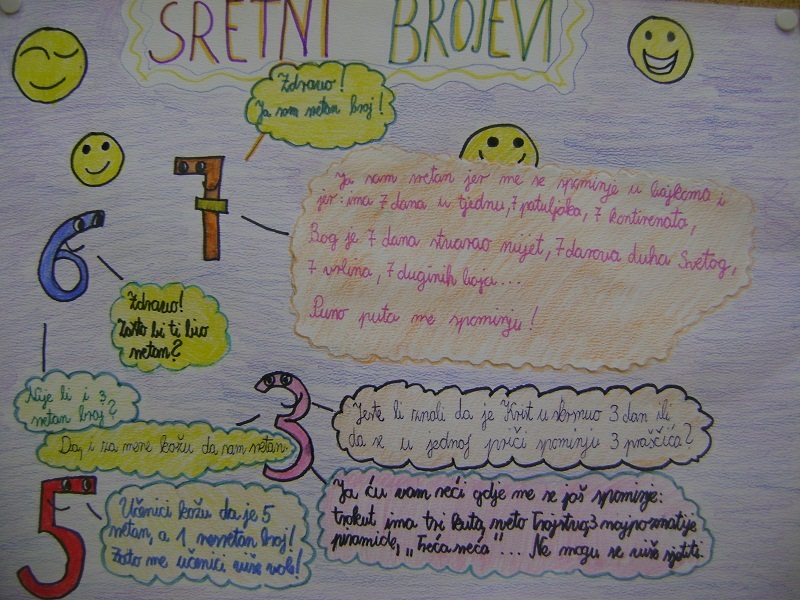 SRETNI BROJEVI
Zdravo!
Ja sam sretan broj!
Ja sam sretan jer me se spominje u bajkama i
jer: ima 7 dana u tjednu, 7 patuljaka, 7 kontinenata,
Bog je 7 dana stvarao svijet, 7 darova duha Svetog,
7 vrlina, 7 duginih boja...
Puno puta me spominju!
Zdravo!
Zašto bi ti bio
sretan?
Nije li i 3
sretan broj?
Da, i za mene kažu da sam sretan.
Jeste li znali da je Krist uskrsnuo 3 dan ili
da se u jednoj priči spominju 3 praščića?
Ja ću vam reći gdje me se još spominje:
trokut ima tri kuta, sveto Trojstvo, 3 najpoznatije
piramide, „Treća sreća"... Ne mogu se više sjetiti.
Učenici kažu da je 5
sretan, a 1 nesretan broj!
Zato me učenici više vole!